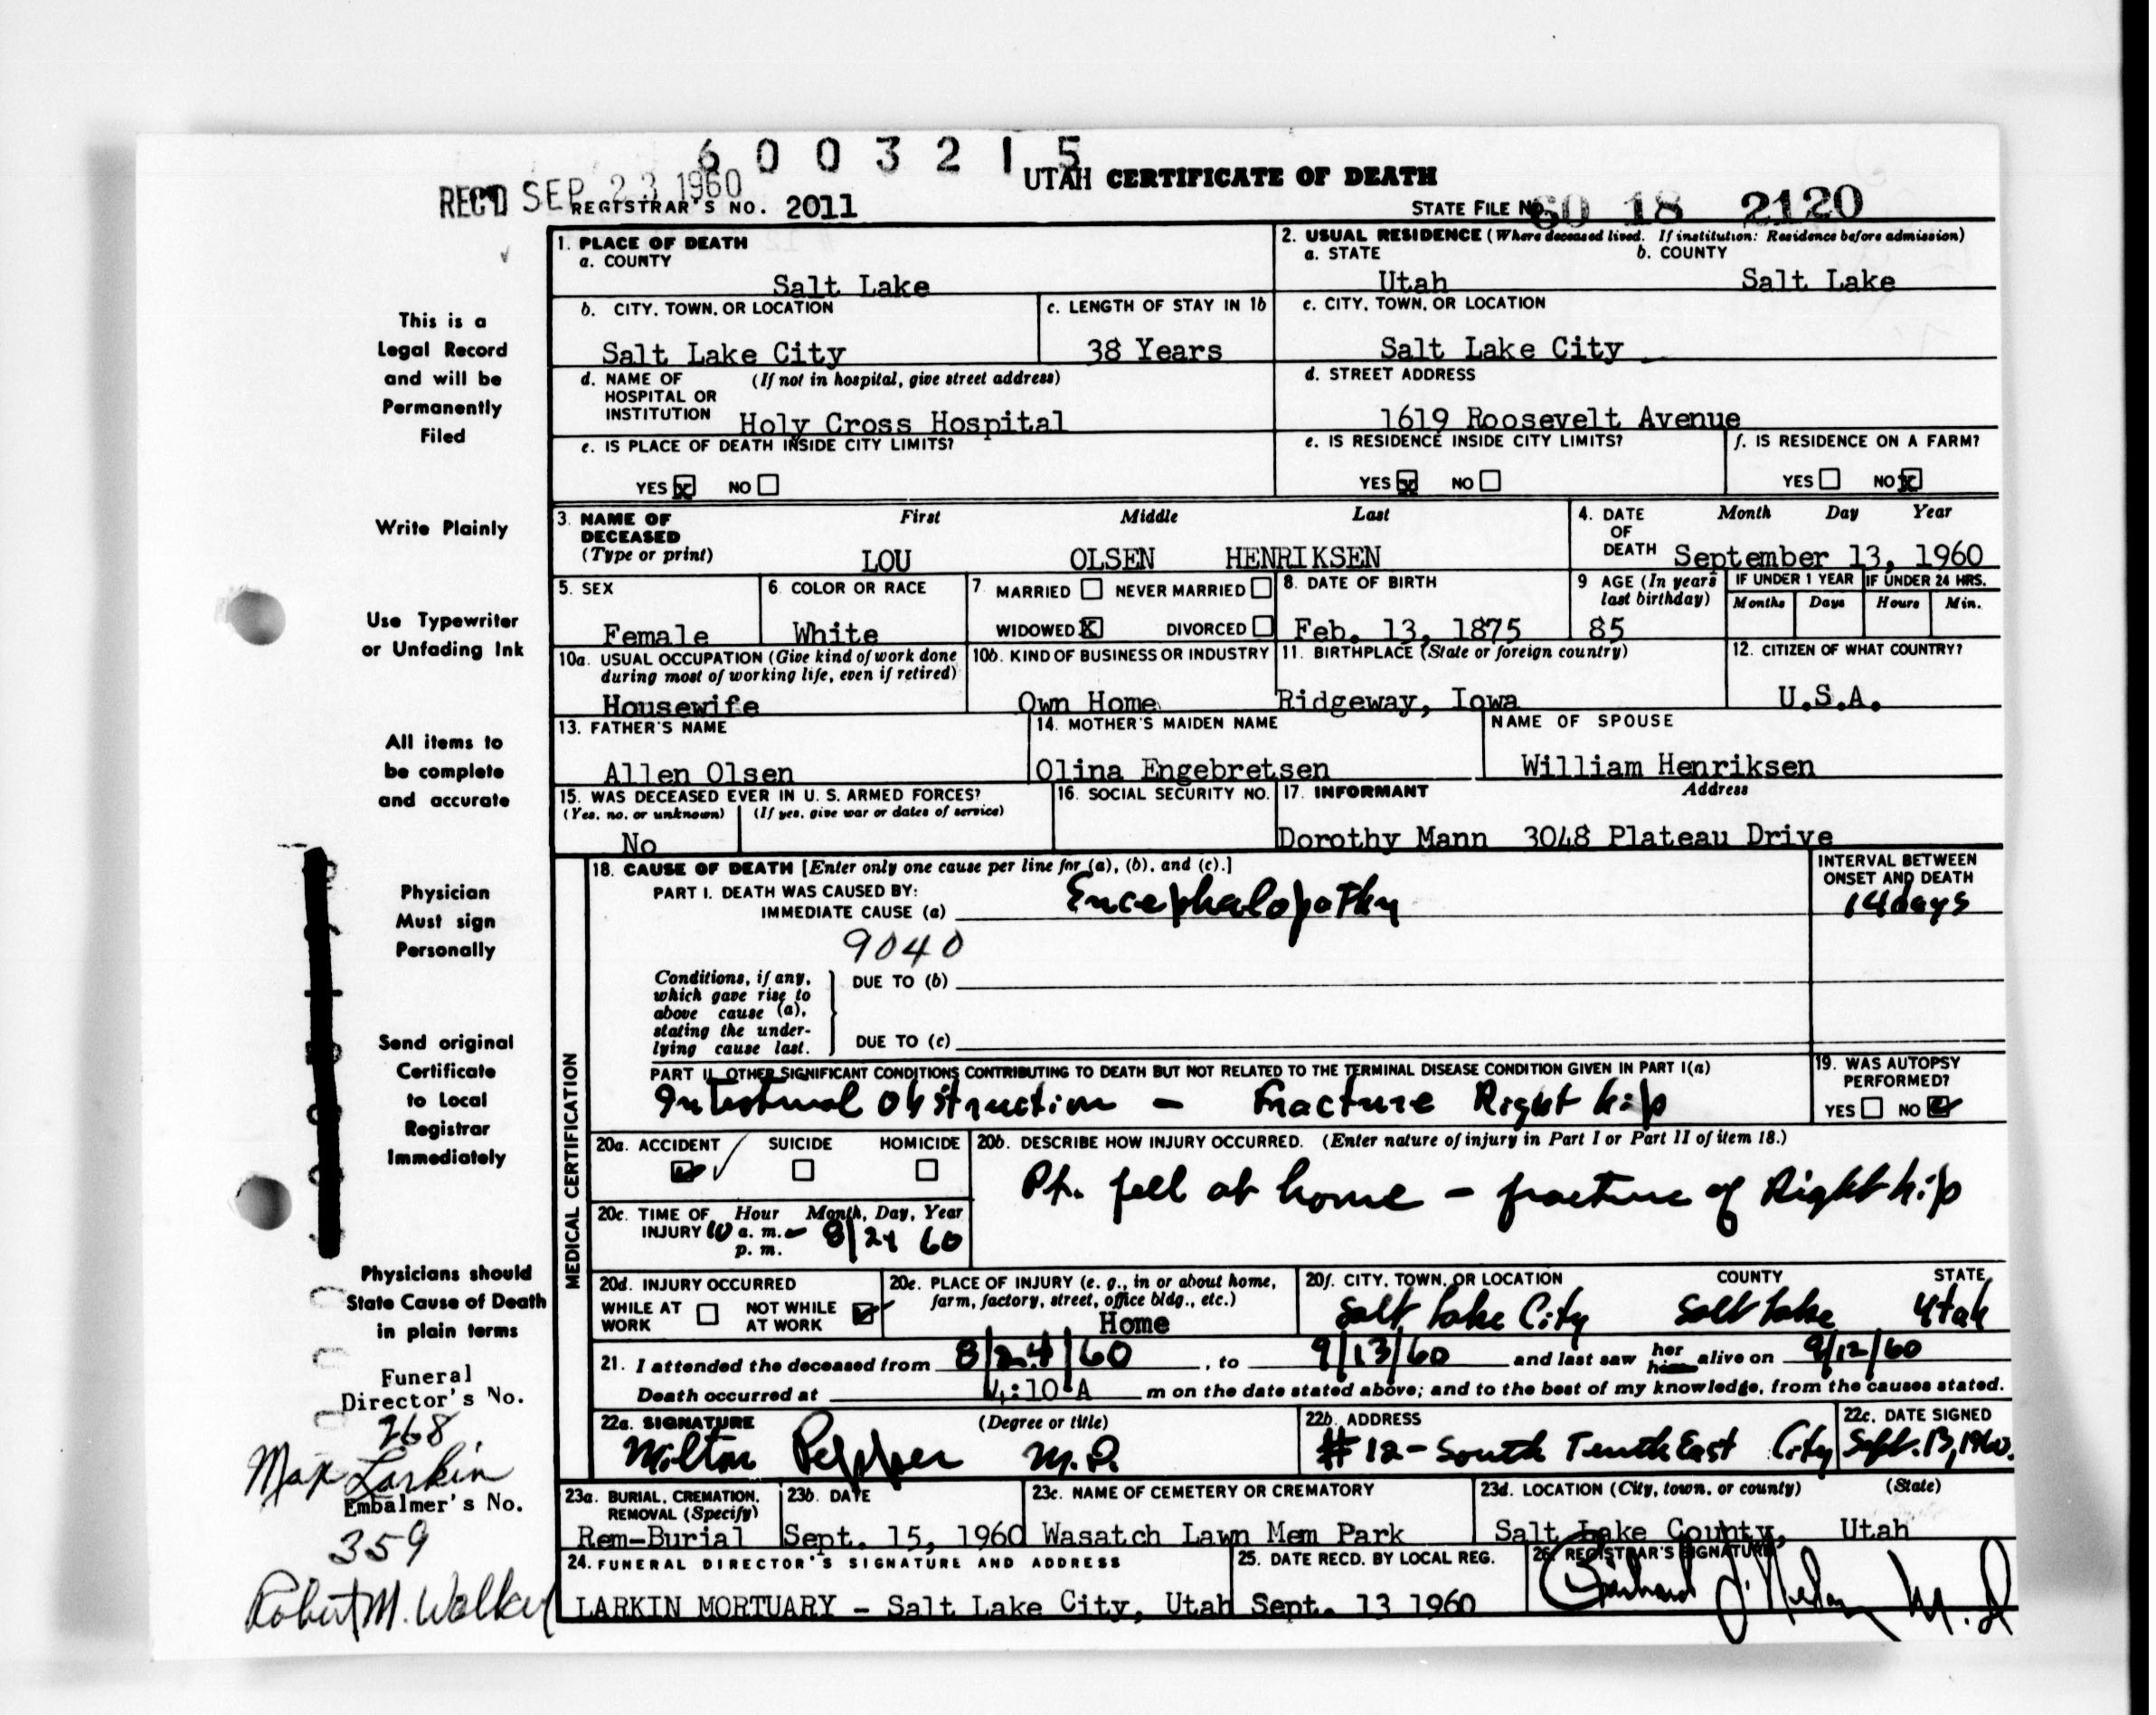 6 0 0 3 2 1 5
REC'D SEP 23 1960
UTAH CERTIFICATE OF DEATH
REGISTRAR'S NO. 2011
STATE FILE NO. 60 18 2120
This is a
Legal Record
and will be
Permanently
Filed
Write Plainly
Use Typewriter
or Unfading Ink
All items to
be complete
and accurate
Physician
Must sign
Personally
Send original
Certificate
to Local
Registrar
Immediately
Physicians should
State Cause of Death
in plain terms
Funeral
Director's No.
268
Max Larkin
Embalmer's No.
359
Robert M. Walker
1. PLACE OF DEATH
a. COUNTY
Salt Lake
2. USUAL RESIDENCE (Where deceased lived. If institution: Residence before admission)
a. STATE b. COUNTY
Utah Salt Lake
b. CITY, TOWN, OR LOCATION
Salt Lake City
c. LENGTH OF STAY IN 1b
38 Years
c. CITY, TOWN, OR LOCATION
Salt Lake City
d. NAME OF (If not in hospital, give street address)
HOSPITAL OR
INSTITUTION Holy Cross Hospital
d. STREET ADDRESS
1619 Roosevelt Avenue
e. IS PLACE OF DEATH INSIDE CITY LIMITS?
YES X NO
e. IS RESIDENCE INSIDE CITY LIMITS?
YES X NO
f. IS RESIDENCE ON A FARM?
YES NO X
3. NAME OF DECEASED (Type or print)
First Middle Last
LOU OLSEN HENRIKSEN
4. DATE OF DEATH Month Day Year
September 13, 1960
5. SEX
Female
6. COLOR OR RACE
White
7. MARRIED NEVER MARRIED
WIDOWED X DIVORCED
8. DATE OF BIRTH
Feb. 13, 1875
9 AGE (In years last birthday)
85
IF UNDER 1 YEAR IF UNDER 24 HRS.
Months Days Hours Min.
10a. USUAL OCCUPATION (Give kind of work done
during most of working life, even if retired)
Housewife
10b. KIND OF BUSINESS OR INDUSTRY
Own Home
11. BIRTHPLACE (State or foreign country)
Ridgeway, Iowa
12. CITIZEN OF WHAT COUNTRY?
U.S.A.
13. FATHER'S NAME
Allen Olsen
14. MOTHER'S MAIDEN NAME
Olina Engebretsen
NAME OF SPOUSE
William Henriksen
15. WAS DECEASED EVER IN U. S. ARMED FORCES?
(Yes, no, or unknown) (If yes, give war or dates of service)
No
16. SOCIAL SECURITY NO.
17. INFORMANT Address
Dorothy Mann 3048 Plateau Drive
MEDICAL CERTIFICATION
18. CAUSE OF DEATH [Enter only one cause per line for (a), (b), and (c).]
PART I. DEATH WAS CAUSED BY:
IMMEDIATE CAUSE (a) Encephalopathy
INTERVAL BETWEEN
ONSET AND DEATH
14 days
9040
Conditions, if any,
which gave rise to
above cause (a),
stating the under-
lying cause last.
DUE TO (b)
DUE TO (c)
PART II. OTHER SIGNIFICANT CONDITIONS CONTRIBUTING TO DEATH BUT NOT RELATED TO THE TERMINAL DISEASE CONDITION GIVEN IN PART I(a)
Intestinal Obstruction - Fracture Right hip
19. WAS AUTOPSY
PERFORMED?
YES NO
20a. ACCIDENT SUICIDE HOMICIDE
20b. DESCRIBE HOW INJURY OCCURRED. (Enter nature of injury in Part I or Part II of item 18.)
Pt. fell at home - fracture of Right hip
20c. TIME OF Hour Month, Day, Year
INJURY 10 a. m. 8/24 60
p. m.
20d. INJURY OCCURRED
WHILE AT WORK NOT WHILE AT WORK
20e. PLACE OF INJURY (e. g., in or about home,
farm, factory, street, office bldg., etc.)
Home
20f. CITY, TOWN, OR LOCATION COUNTY STATE
Salt Lake City Salt Lake Utah
21. I attended the deceased from 8/24/60, to 9/13/60 and last saw her him alive on 9/12/60
Death occurred at 4:10 A m on the date stated above; and to the best of my knowledge, from the causes stated.
22a. SIGNATURE (Degree or title)
Milton Pepper M.D.
22b. ADDRESS
#12 - South Tenth East City
22c. DATE SIGNED
Sept. 13, 1960.
23a. BURIAL, CREMATION,
REMOVAL (Specify)
Rem-Burial
23b. DATE
Sept. 15, 1960
23c. NAME OF CEMETERY OR CREMATORY
Wasatch Lawn Mem Park
23d. LOCATION (City, town, or county) (State)
Salt Lake County, Utah
24. FUNERAL DIRECTOR'S SIGNATURE AND ADDRESS
LARKIN MORTUARY - Salt Lake City, Utah
25. DATE RECD. BY LOCAL REG.
Sept. 13 1960
26. REGISTRAR'S SIGNATURE
M.D